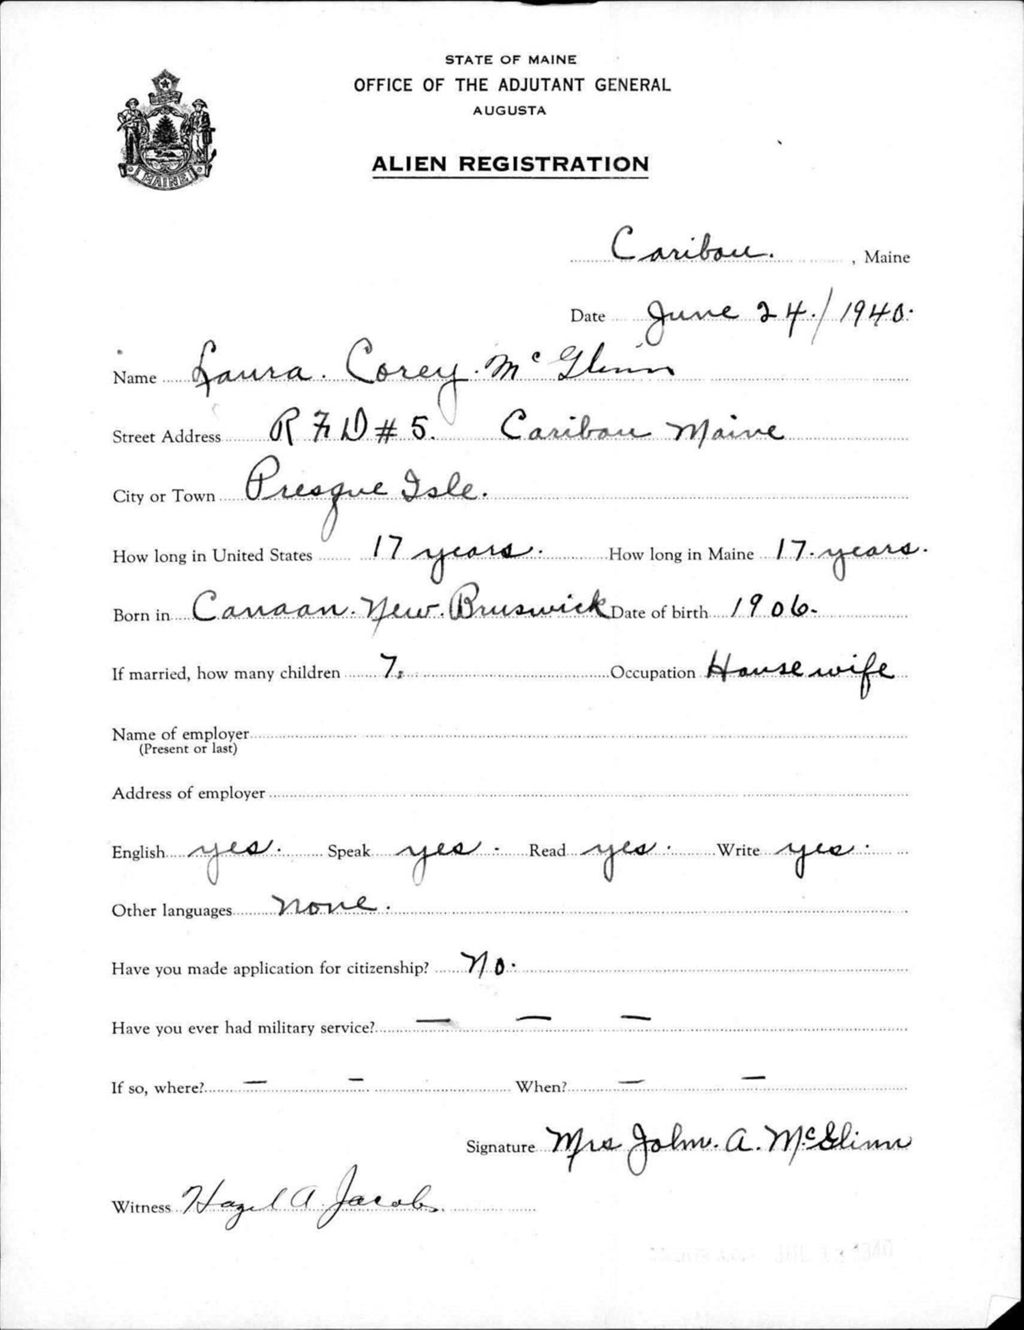 STATE OF MAINE
OFFICE OF THE ADJUTANT GENERAL
AUGUSTA
ALIEN REGISTRATION
MAINE
Caribou. , Maine
Date June 24./1940.
Name Laura. Corey. Mc Glinn
Street Address R F D # 5. Caribou Maine
City or Town Presque Isle.
How long in United States 17 years. How long in Maine 17. years.
Born in Canaan. New. Bruswick Date of birth 1906.
If married, how many children 7. Occupation Housewife
Name of employer
(Present or last)
Address of employer
English yes. Speak yes. Read yes. Write yes.
Other languages none.
Have you made application for citizenship? No.
Have you ever had military service? — — —
If so, where? — — When? — —
Signature Mrs John. A. McGlinn
Witness Hazel A Jacobs